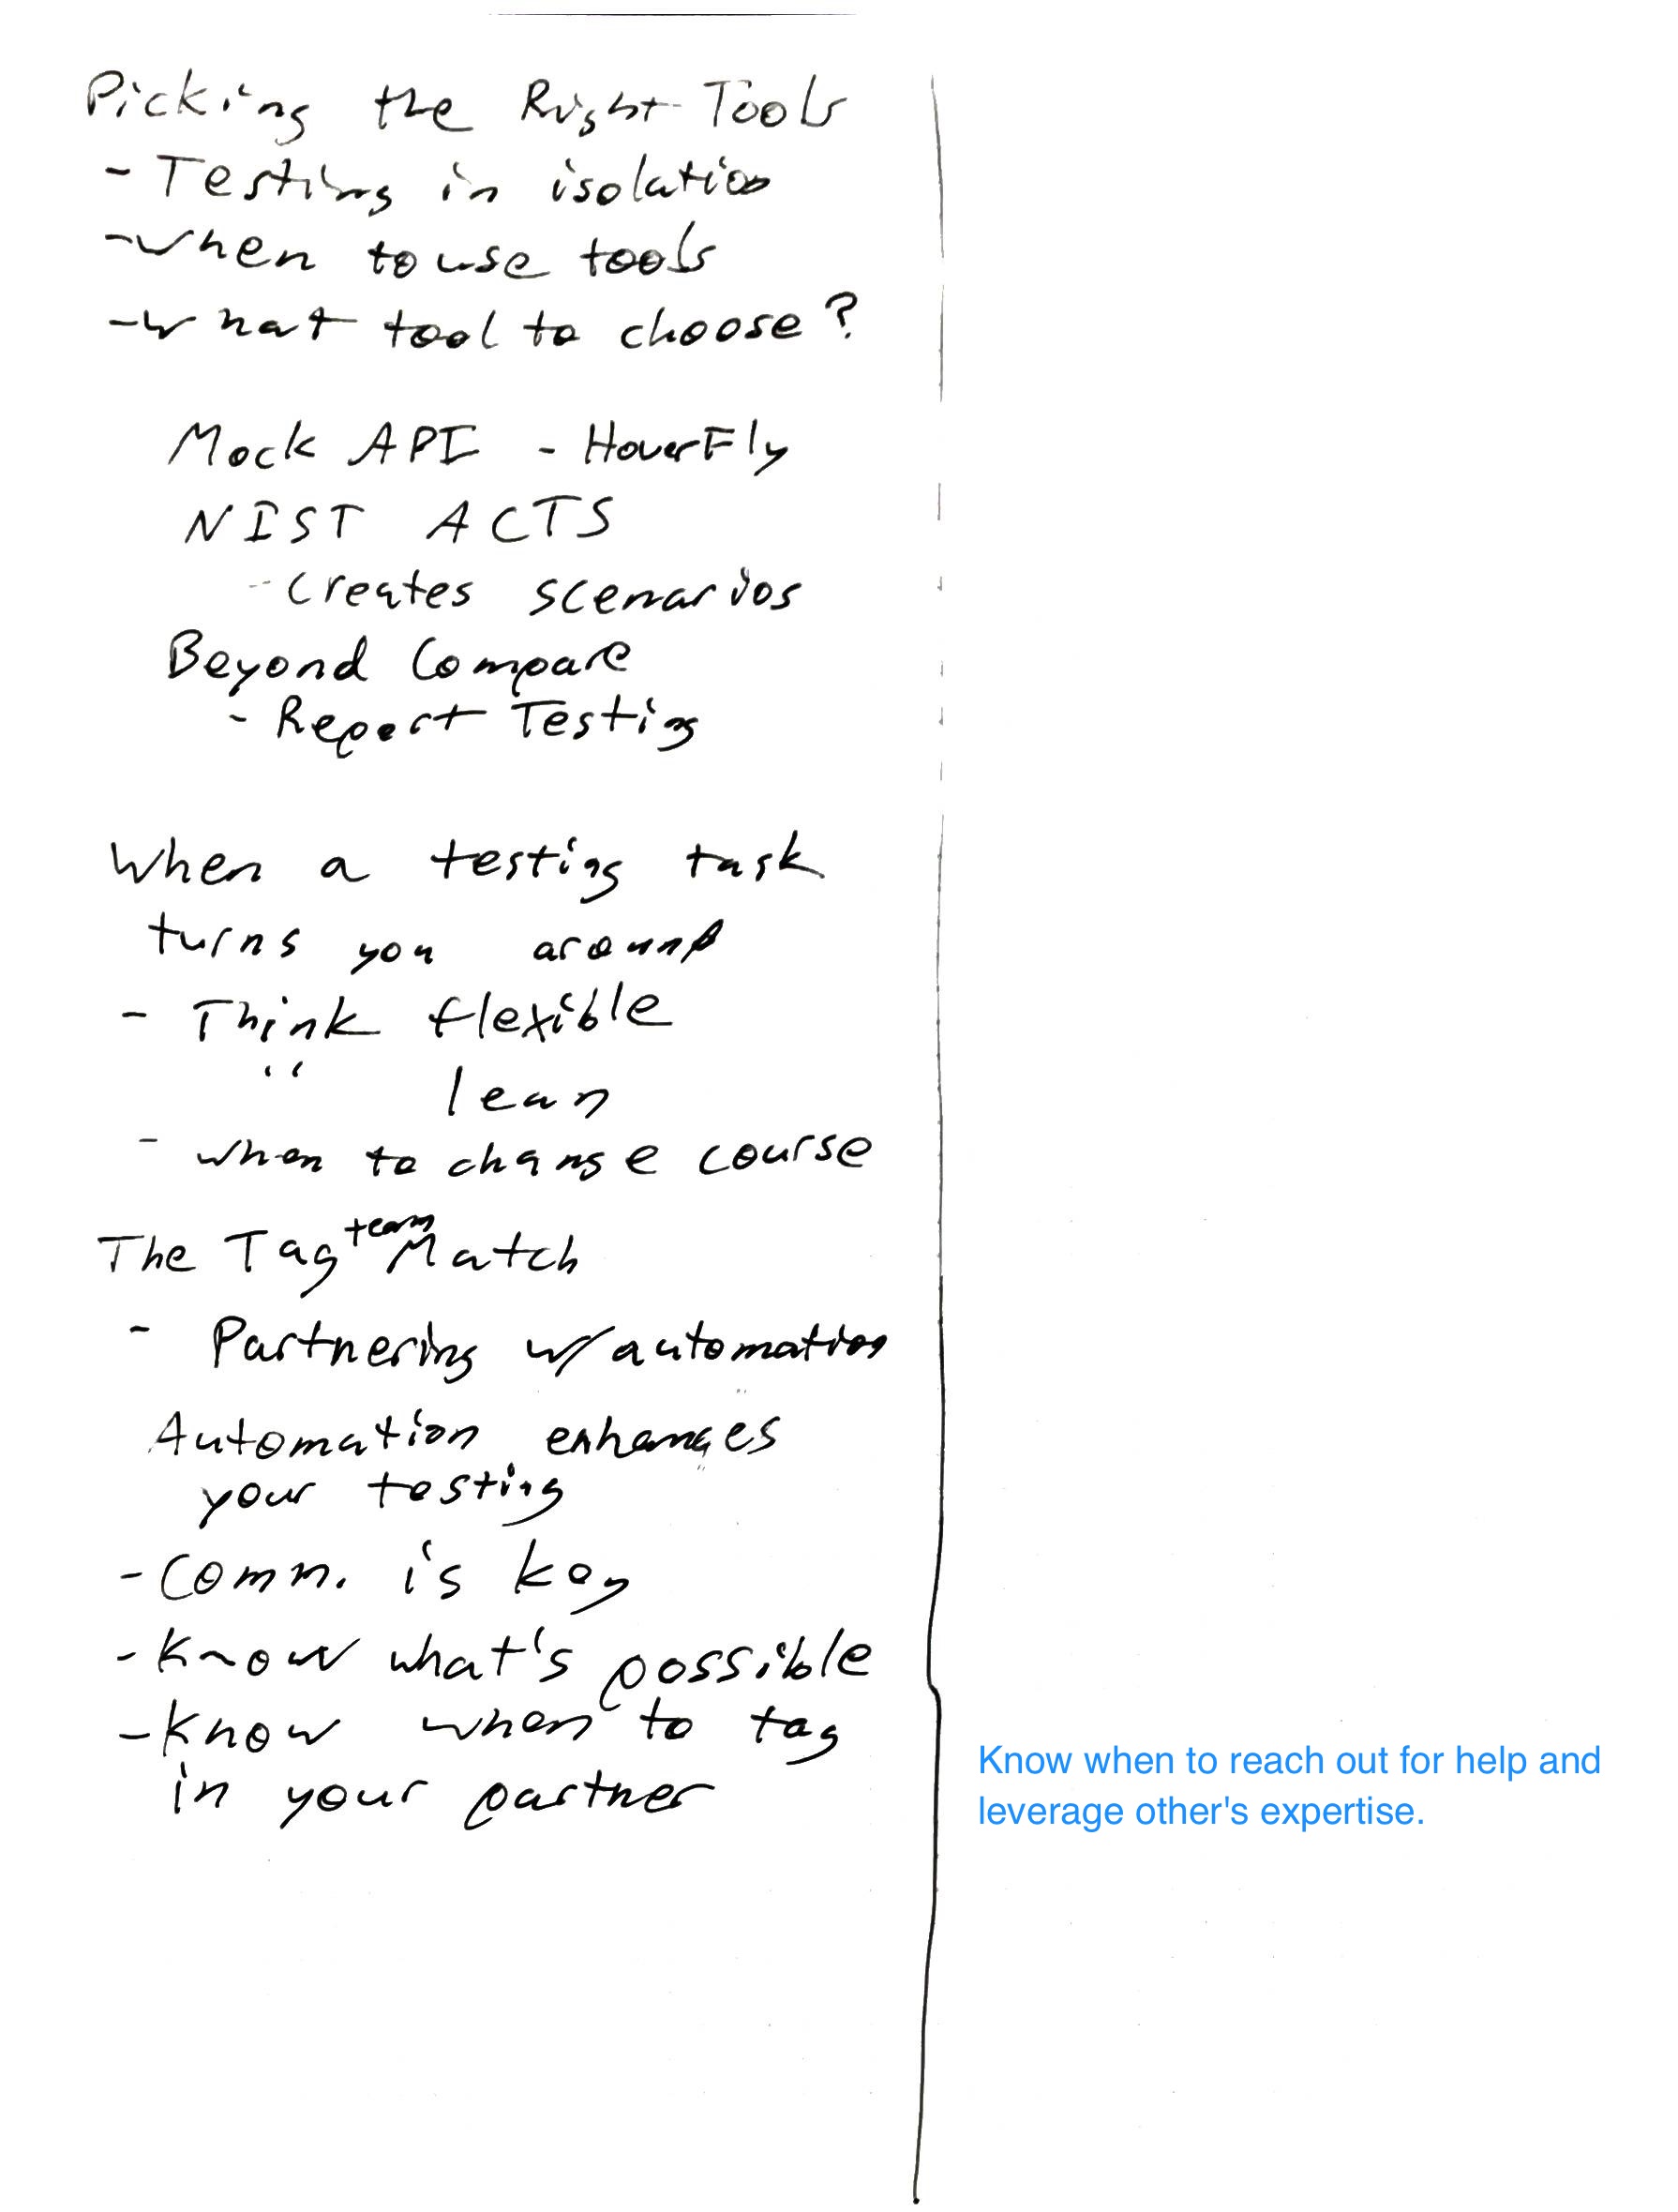 Picking the Right Tools
- Testing in isolation
- When to use tools
- What tool to choose?
Mock API - HoverFly
NIST ACTS
- Creates scenarios
Beyond Compare
- Report Testing
When a testing task
turns you around
- Think flexible
" lean
- when to change course
The Tag team Match
- Partnering w/ automation
Automation enhances
your testing
- Comm. is key
- Know what's possible
- Know when to tag
in your partner
Know when to reach out for help and
leverage other's expertise.